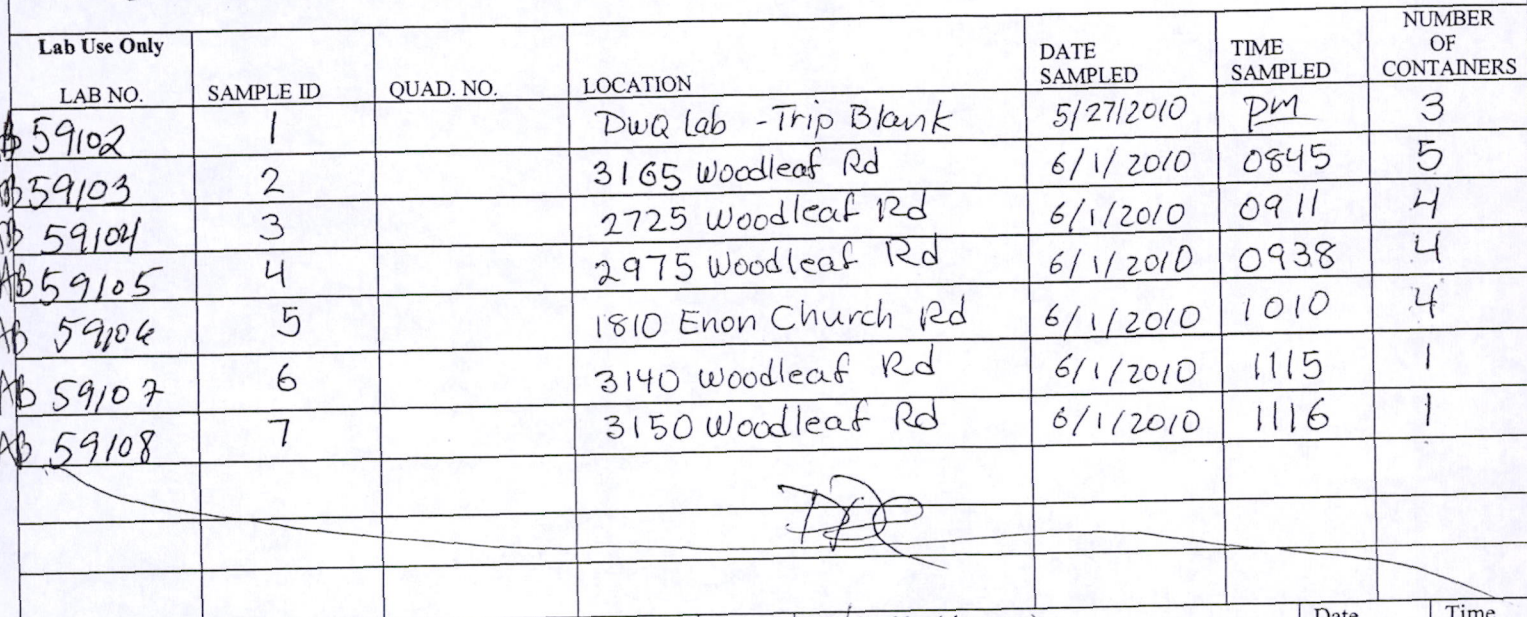 Lab Use Only
LAB NO. SAMPLE ID QUAD. NO. LOCATION DATE SAMPLED TIME SAMPLED NUMBER OF CONTAINERS
AB 59102 1 DWQ Lab - Trip Blank 5/27/2010 pm 3
AB 59103 2 3165 Woodleaf Rd 6/1/2010 0845 5
AB 59104 3 2725 Woodleaf Rd 6/1/2010 0911 4
AB 59105 4 2975 Woodleaf Rd 6/1/2010 0938 4
AB 59106 5 1810 Enon Church Rd 6/1/2010 1010 4
AB 59107 6 3140 Woodleaf Rd 6/1/2010 1115 1
AB 59108 7 3150 Woodleaf Rd 6/1/2010 1116 1
Date Time